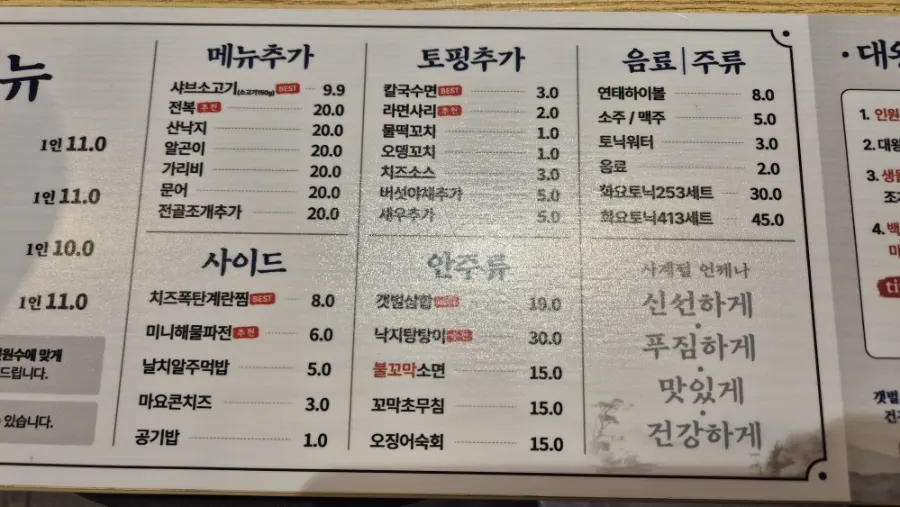 뉴
1인 11.0
1인 11.0
1인 10.0
1인 11.0
인원수에 맞게
드립니다.
있습니다.
메뉴추가
샤브소고기(소고기150g) BEST 9.9
전복 추천 20.0
산낙지 20.0
알곤이 20.0
가리비 20.0
문어 20.0
전골조개추가 20.0
사이드
치즈폭탄계란찜 BEST 8.0
미니해물파전 추천 6.0
날치알주먹밥 5.0
마요콘치즈 3.0
공기밥 1.0
토핑추가
칼국수면 BEST 3.0
라면사리 추천 2.0
물떡꼬치 1.0
오뎅꼬치 1.0
치즈소스 3.0
버섯야채추가 5.0
새우추가 5.0
안주류
갯벌삼합 19.0
낙지탕탕이 추천 30.0
불꼬막소면 15.0
꼬막초무침 15.0
오징어숙회 15.0
음료|주류
연태하이볼 8.0
소주 / 맥주 5.0
토닉워터 3.0
음료 2.0
화요토닉253세트 30.0
화요토닉413세트 45.0
사계절 언제나
신선하게
푸짐하게
맛있게
건강하게
· 대왕
1. 인원
2. 대왕
3. 생물
조개
4. 백
ti
갯벌
건강